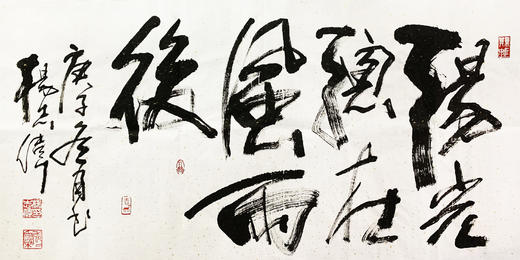 陽光
總在
風雨
後
庚子冬月書
楊志偉